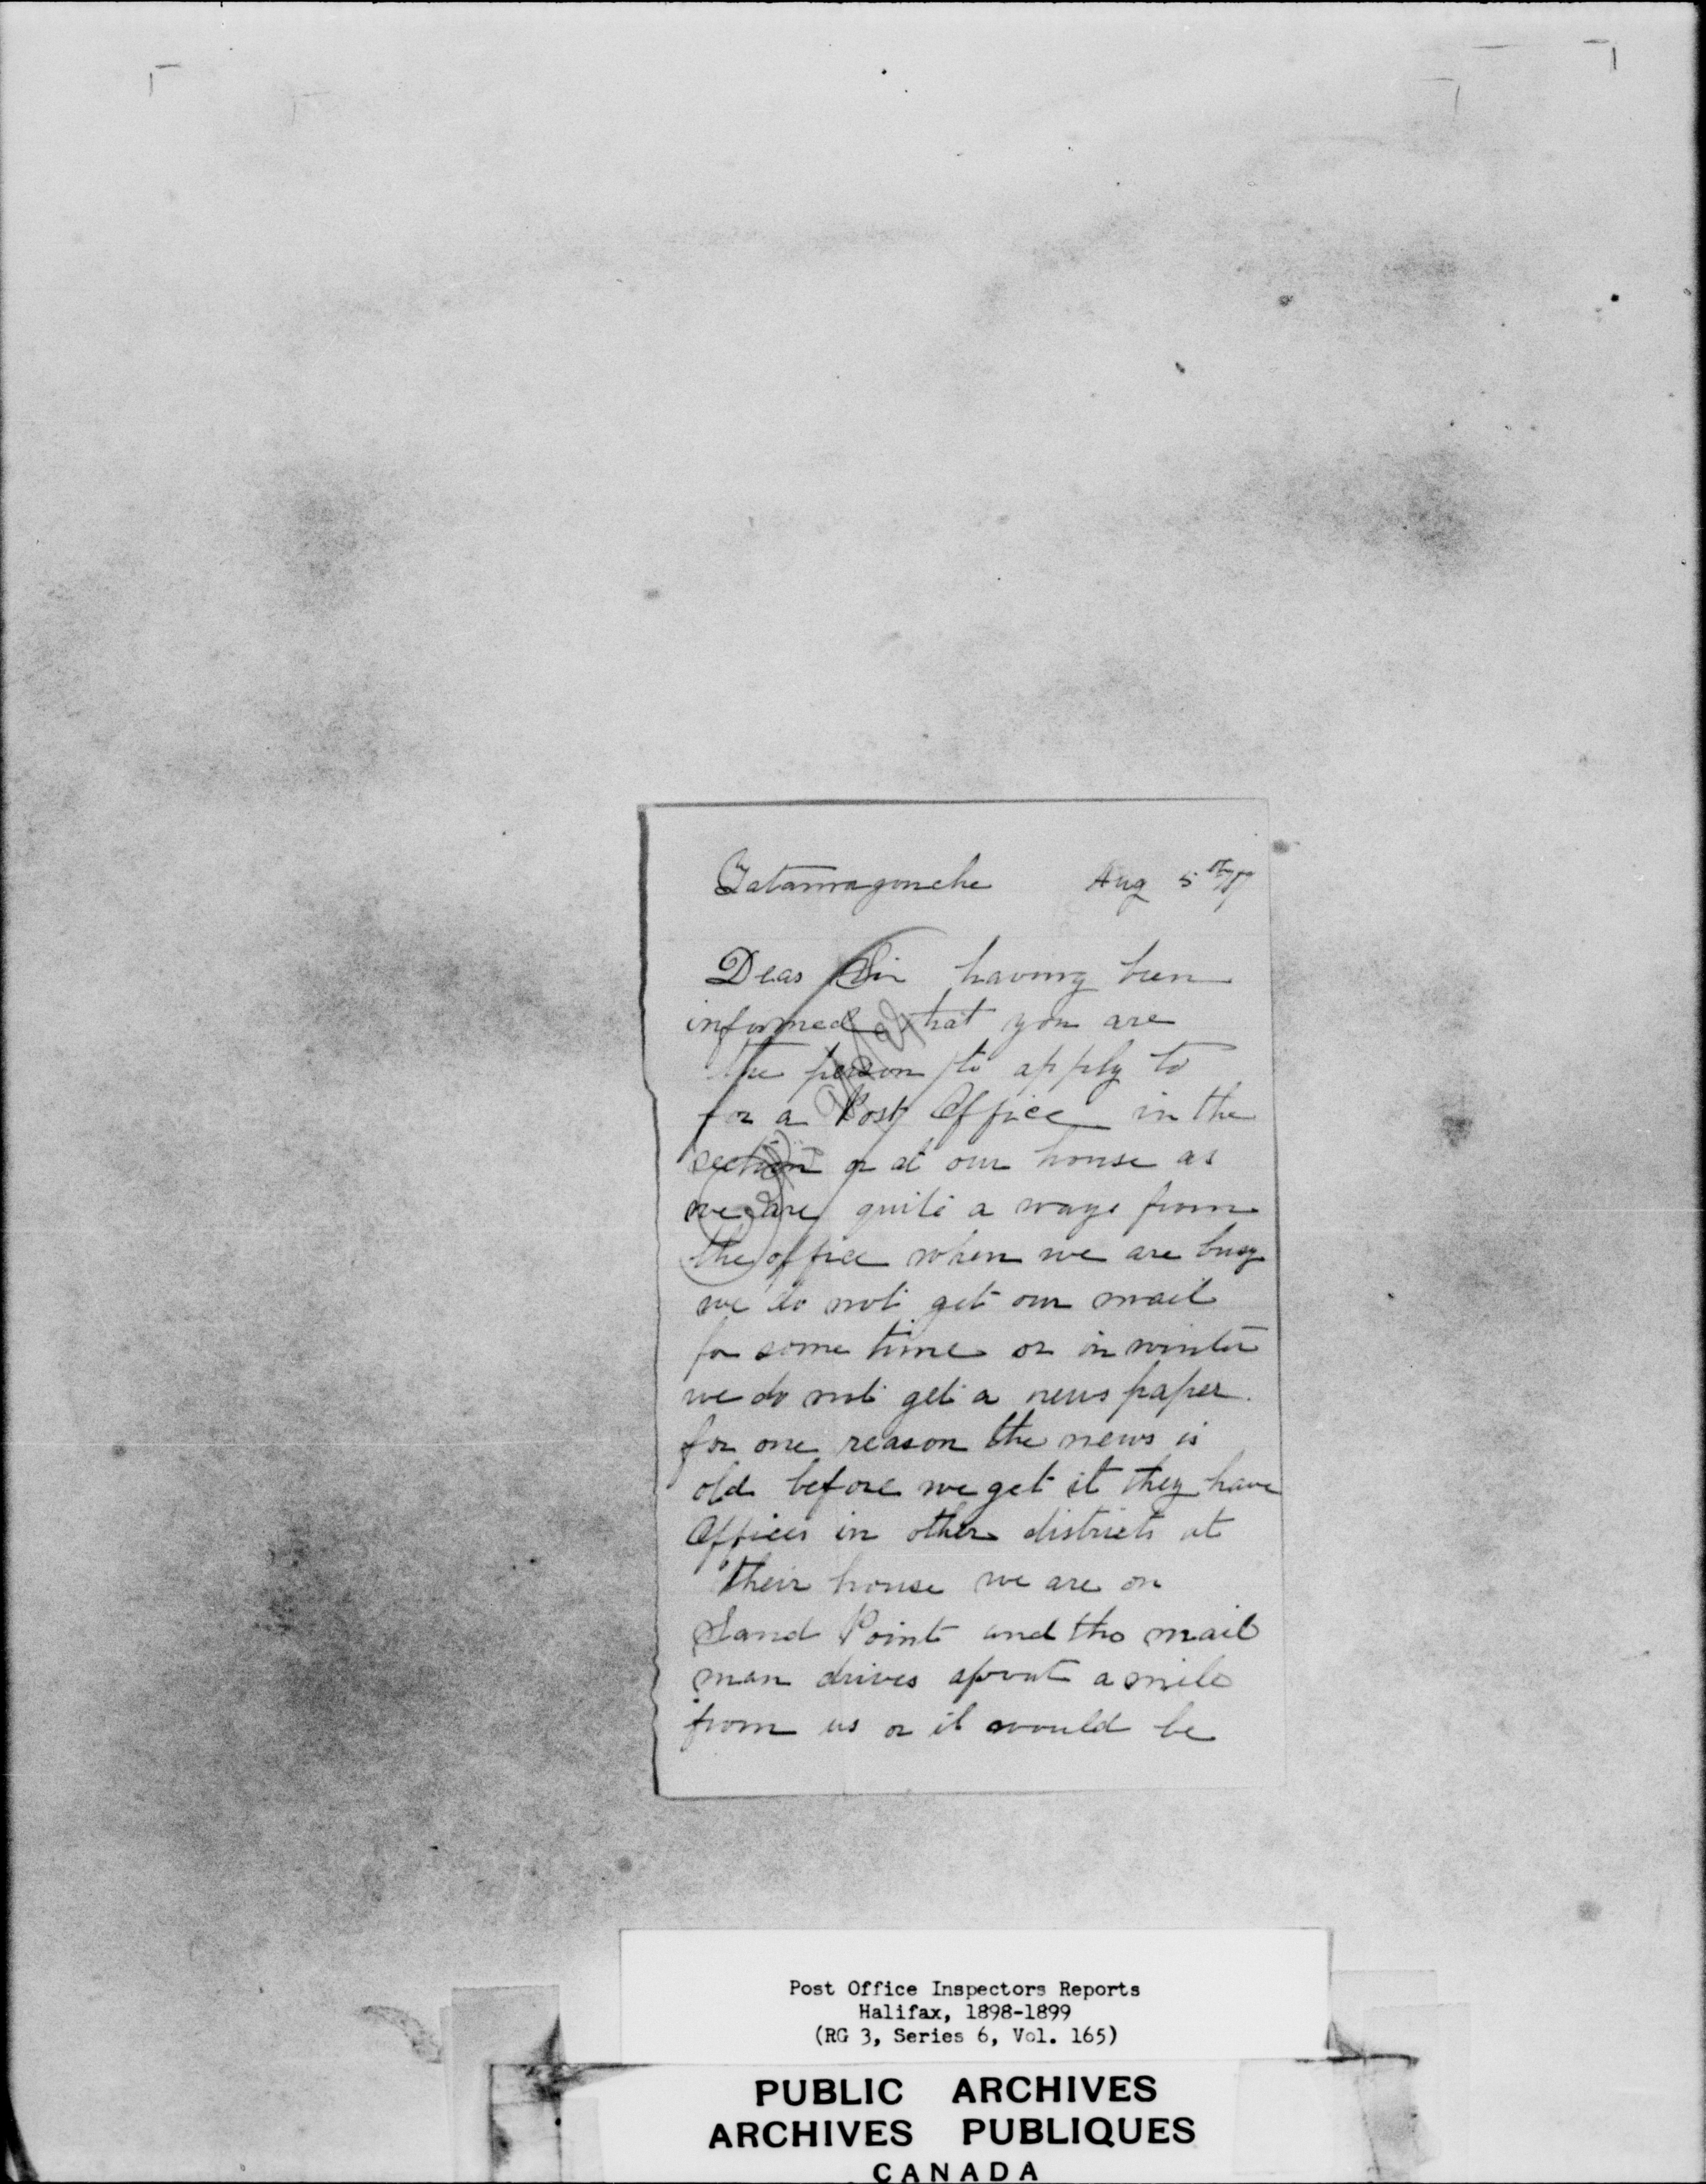 Tatamagouche Aug 5th/97
Dear Sir having been
informed that you are
the person to apply to
for a Post Office in the
section or at our house as
we are quite a ways from
the office when we are busy
we do not get our mail
for some time or in winter
we do not get a news paper.
for one reason the news is
old before we get it they have
Offices in other districts at
their house we are on
Sand Point and the mail
man drives about a mile
from us or it would be
Post Office Inspectors Reports
Halifax, 1898-1899
(RG 3, Series 6, Vol. 165)
PUBLIC ARCHIVES
ARCHIVES PUBLIQUES
CANADA